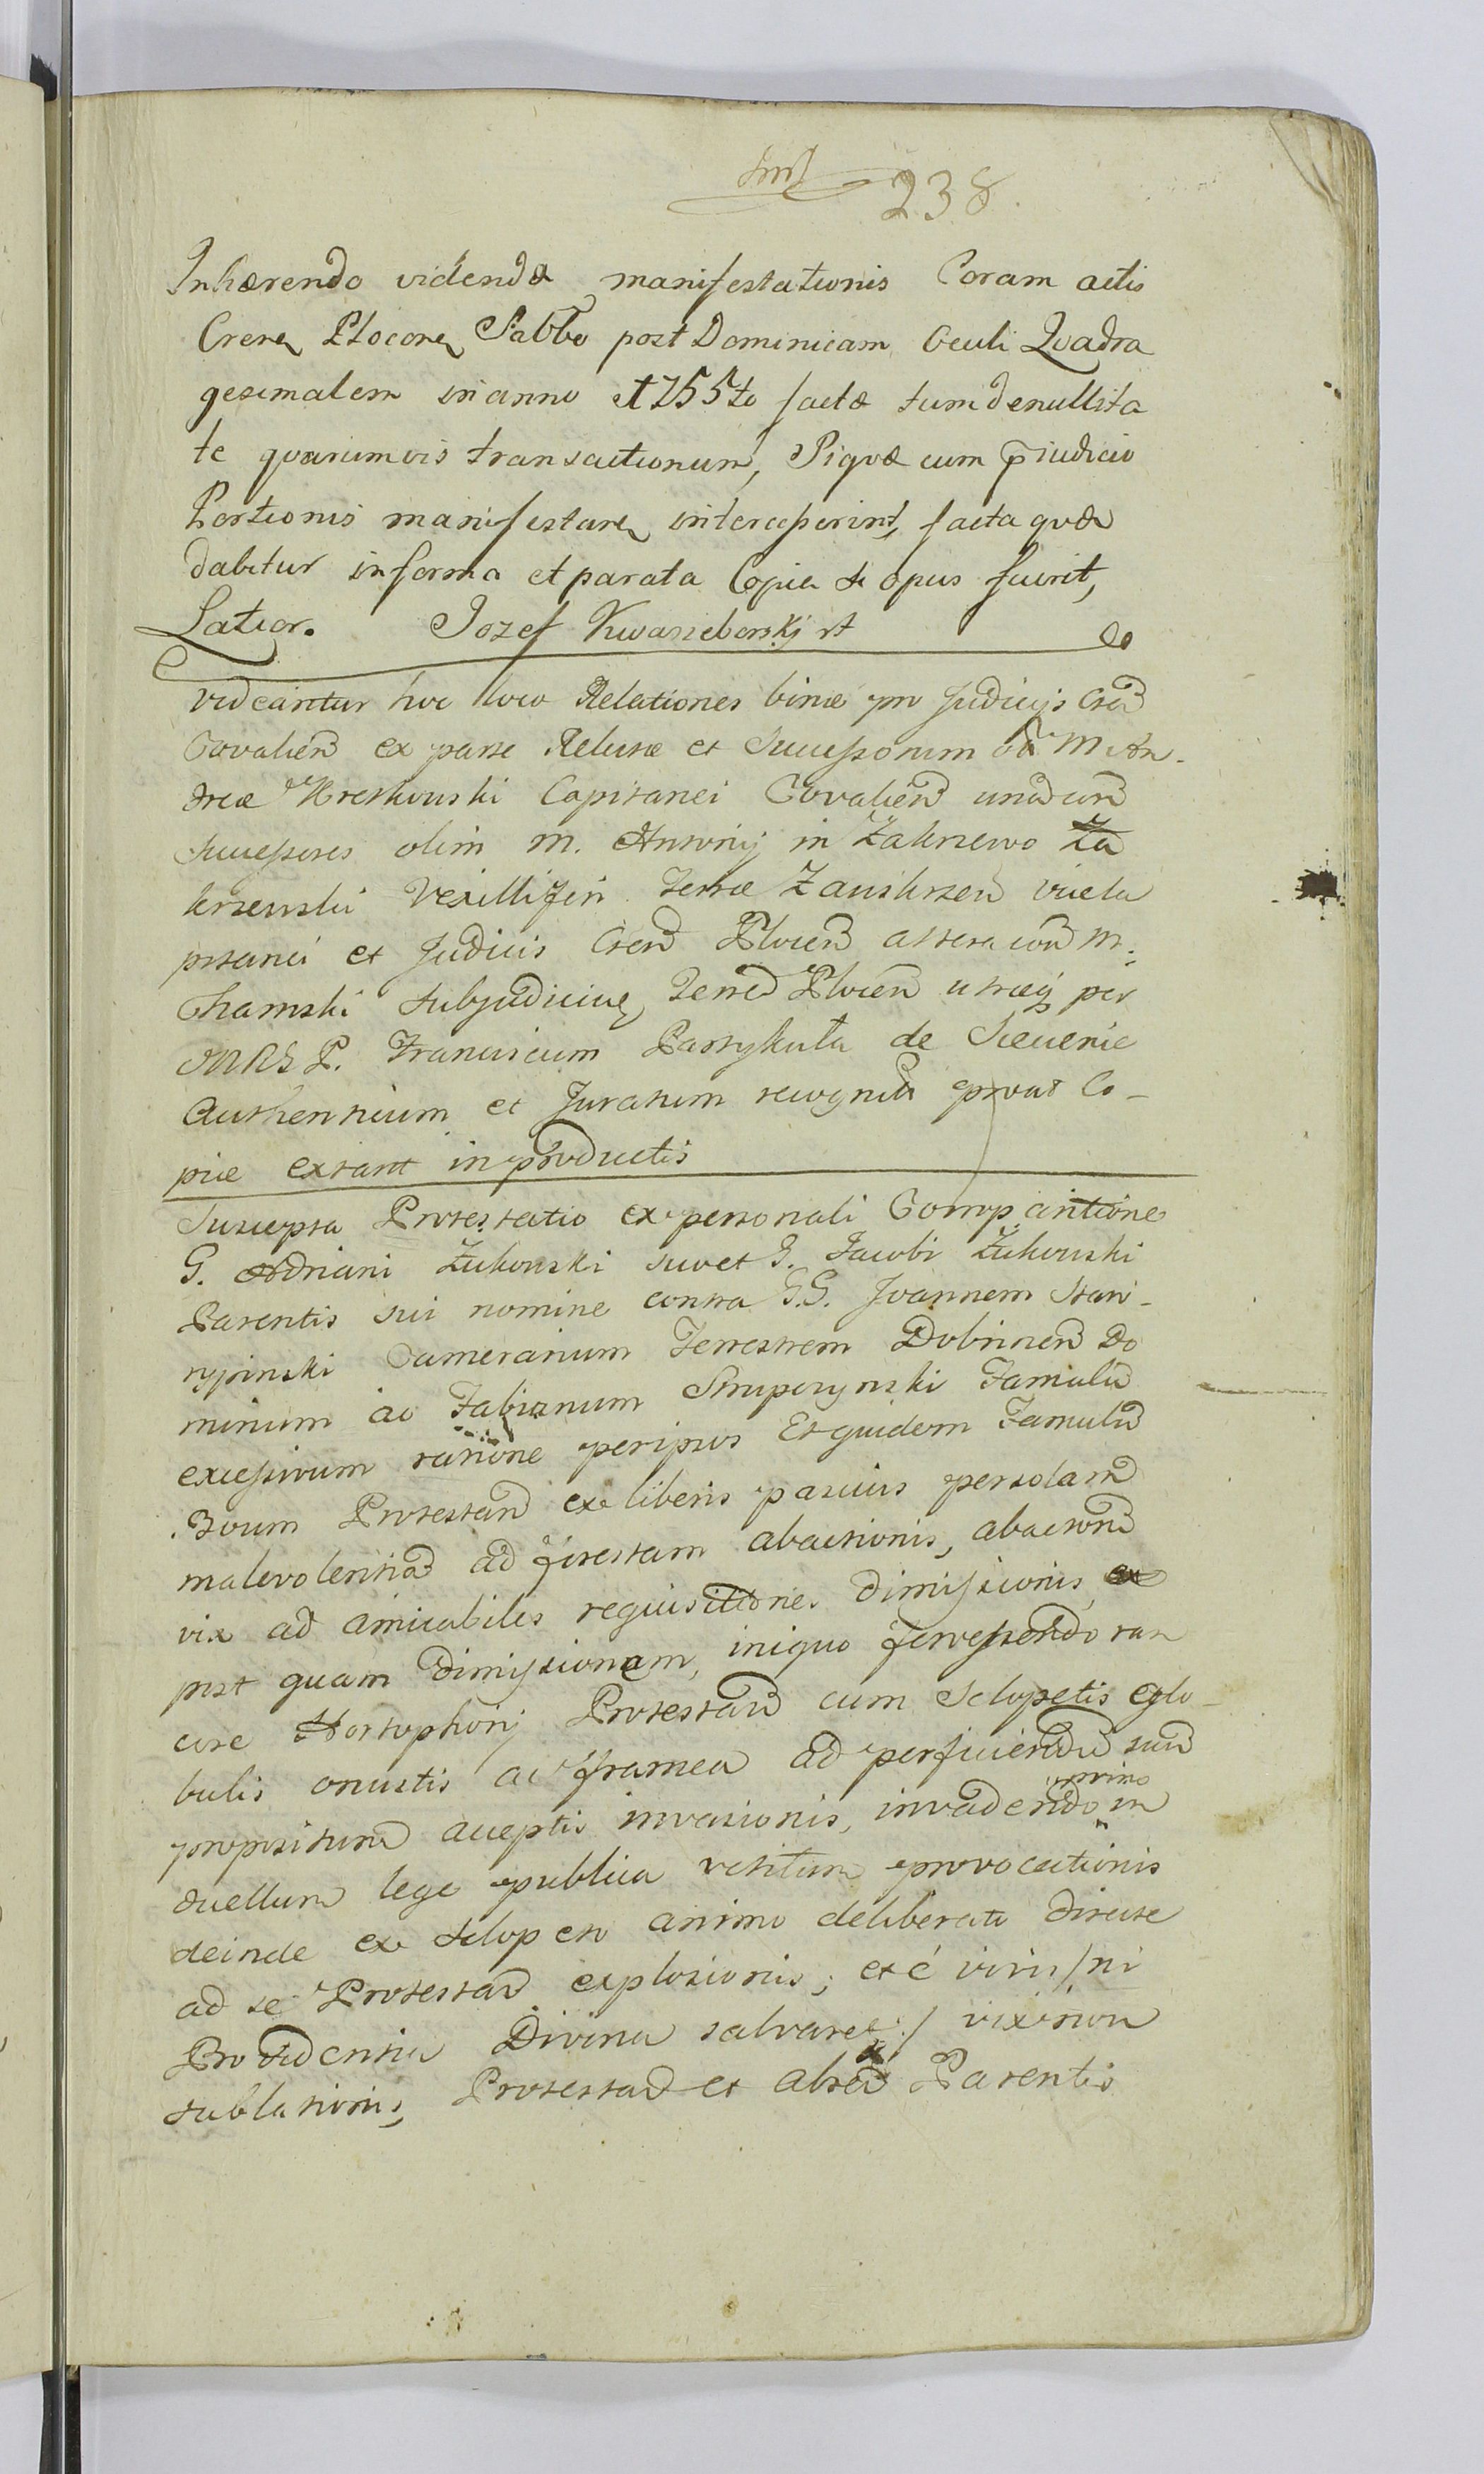 238.
Inhærendo videndæ manifestationis Coram actis
Cren Plocen Sabbo post Dominicam Oculi Quadra
gesimalem in anno 1755to factæ tum de nullita
te quarumvis transactionum, Siquæ cum p̄iudicio
Portionis manifestan interceperint, facta quæ
dabitur in forma et parata Copia si opus fuerit,
Latior. Jozef Kwasieborskj
videantur hoc loco Relationes binæ pro Judicijs Cren
Covalien ex parte Relictæ et Successorum M An-
dreæ Kretkowski Capitanei Covalien unad con
successores olim M. Antonij in Zakrzewo Za
krzewski Vexilliferi Terræ Zawskrzen vice ca
pitanei et Judicis Cren Plocen altera con M.
Chamski Subjudicem Terred Plocen utraq per
Franciscum Pastykuła de Siecienie
Authenticum et Juratum recognita prout Co-
piæ extant in productis
Suscepta Protestatio ex personali Compantione
G. Adriani Żukowski suo et G. Jacobi Żukowski
Parentis sui nomine contra G.G. Joannem Stani-
rypinski Camerarium Terrestrem Dobrinen Do
minum ac Fabianum Strupczynski Famulu
excessivum ratione per ipsos Et quidem Famulu
Boum Protestan ex liberis pascuis per solam
malevolentiam ad forestam abactionis, abacton
vix ad amicabiles requisitiones dimissionis,
post quam dimissionem, iniquo fervessendo ran
core Hostophorij Protestan cum Sclopetis Glo-
bulis onustis ac framea ad perficiendu suu
propositum acceptis invasionis, invadendo primo in
duellum lege publica vetitum provocationis
deinde ex sclopeto animo deliberato directe
ad se Protestan explosionis; et é vivis /ni
Providentia Divina salvaret:/ vixinon
sublationis, Protestan et Parentis